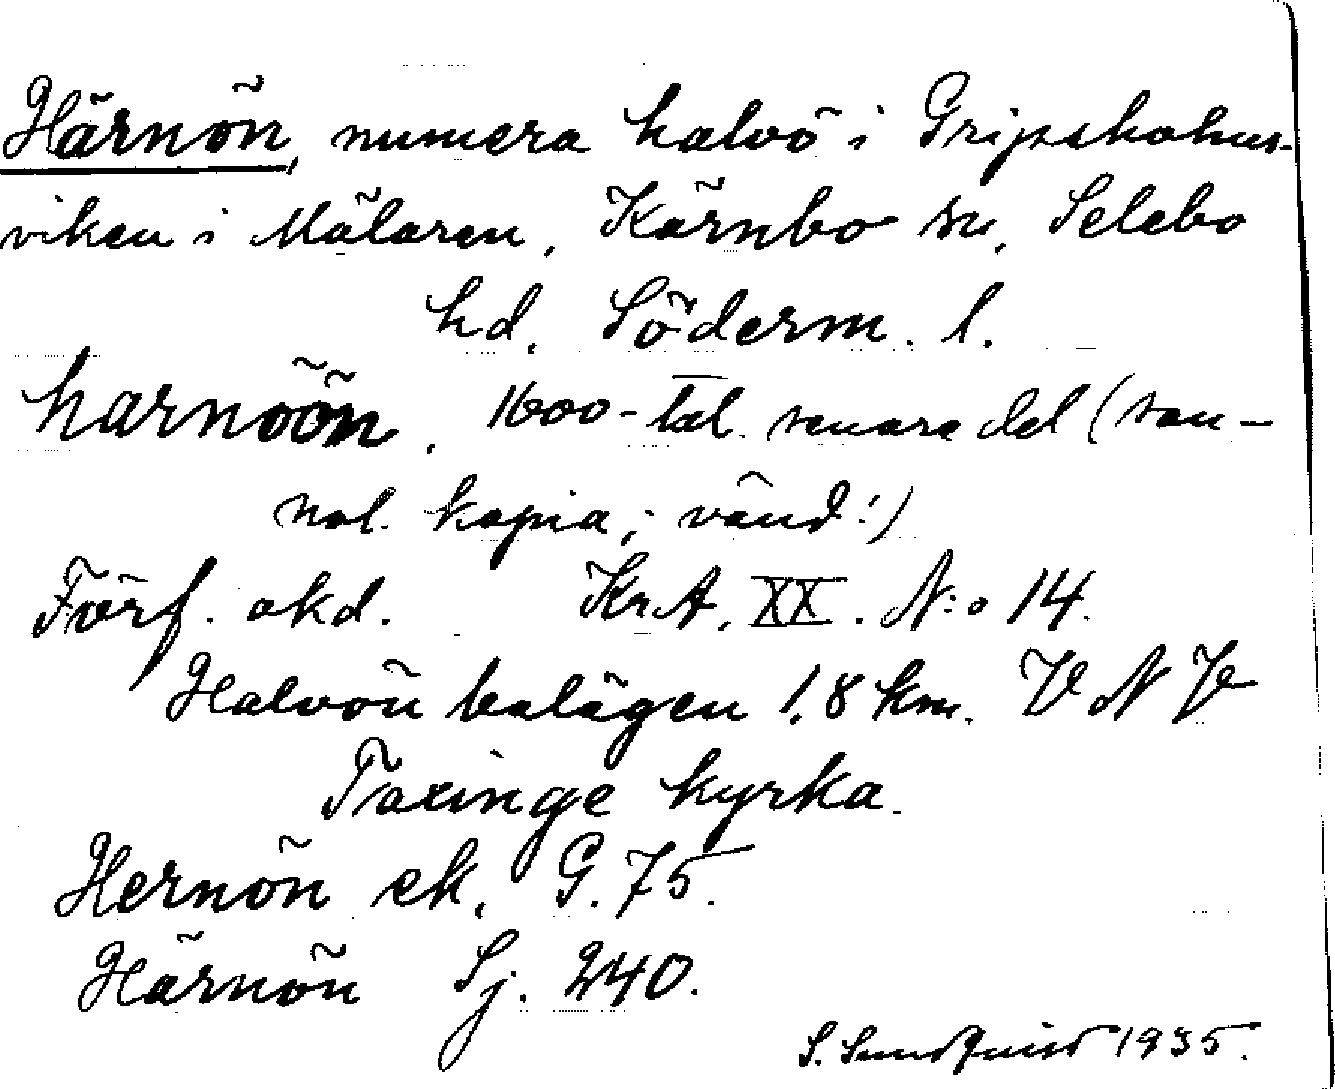 Härnön, numera halvö i Gripsholms-
viken i Mälaren, Kärnbo sn, Selebo
hd. Söderm. l.
harnöön. 1600-tal. senare del (san-
nol. kopia; vänd!)
Förf. okd. Kr.A. XX. N:o 14.
Halvön belägen 1,8 km. V N V
Taxinge kyrka.
Hernön ek. G. 75.
Härnön Sj. 240.
S. Sundquist 1935.